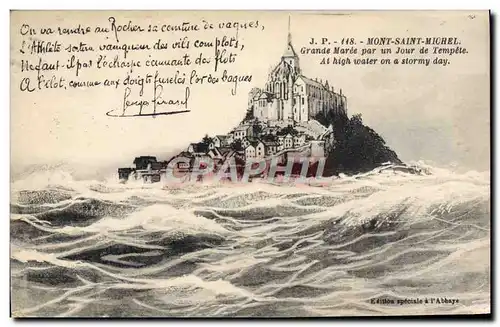 On va rendre au Rocher sa ceinture de vagues,
L'Athlète sortira vainqueur des vils complots,
Ne faut-il pas l'éclipse des flots
A l'îlot, comme aux doigts fuselés l'or des bagues
J. P. - 118. - MONT-SAINT-MICHEL.
Grande Marée par un Jour de Tempête.
At high water on a stormy day.
CPARAMA
Edition spéciale à l'Abbaye